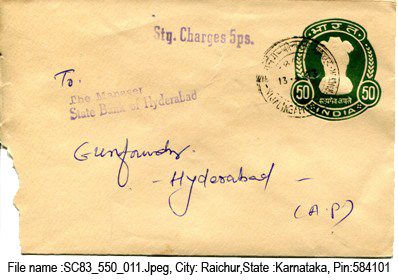 Stg. Charges 5ps.
भारत
50 50
सत्यमेव जयते
INDIA
13
To.
The Manager
State Bank of Hyderabad
Gunfoundry
- Hyderabad -
(A.P)
File name :SC83_550_011.Jpeg, City: Raichur,State :Karnataka, Pin:584101